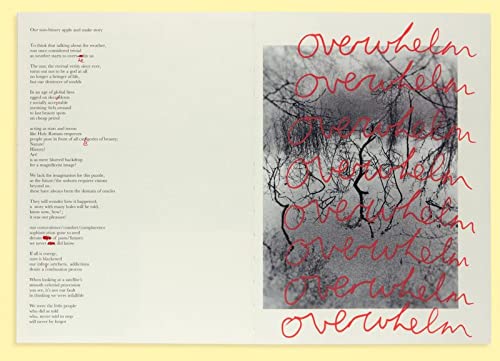 Our non-binary apple and snake story
To think that talking about the weather,
was once considered trivial
as weather starts to over us
The sun, the eternal verity since ever,
turns out not to be a god at all
no longer a bringer of life,
but our destroyer of worlds
In an age of global fires
egged on
t socially acceptable
to last beauty spots
on cheap petrol
acting as stars and icons
like Holy Roman emperors
people pose in front of all of beauty,
Nature!
History!
Art!
is as mere blurred backdrop
for a magnificent image?
We lack the imagination for this puzzle,
as the future/the unborn requires visions
beyond us,
these have always been the domain of oracles
They will wonder how it happened,
a story with many holes will be told,
know now, how!,
it was our pleasure!
our conventions/comfort/complacency
sophistication gone to seed
debate of poets/futures
we never did know
If all is energy,
ours is blackened
our
desire a combustion process
When looking at a satellite's
smooth celestial procession
you see, it's not our fault
in thinking we were infallible
We were the little people
who did as told
who, never told to stop
will never be forgot
overwhelm
overwhelm
overwhelm
overwhelm
overwhelm
overwhelm
overwhelm
overwhelm